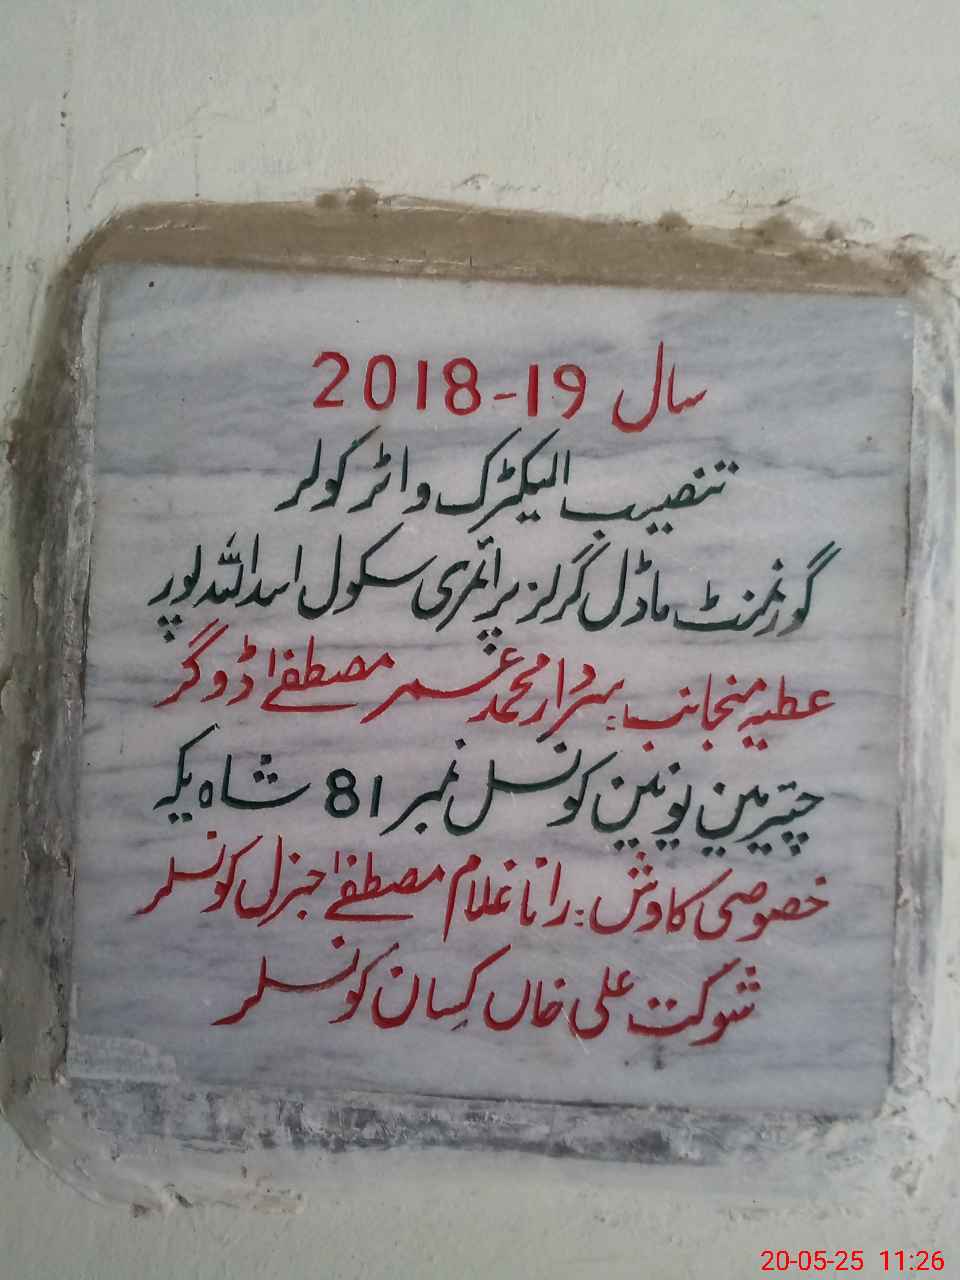 سال 2018-19
تنصیب الیکٹرک واٹر کولر
گورنمنٹ ماڈل گرلز پرائمری سکول اسداللہ پور
عطیہ منجانب:۔ سردار محمد عمر مصطفےٰ ڈوگر
چئیرمین یونین کونسل نمبر 81 شاہ یکہ
خصوصی کاوش:۔ رانا غلام مصطفےٰ جنرل کونسلر
شوکت علی خاں کسان کونسلر
20-05-25 11:26